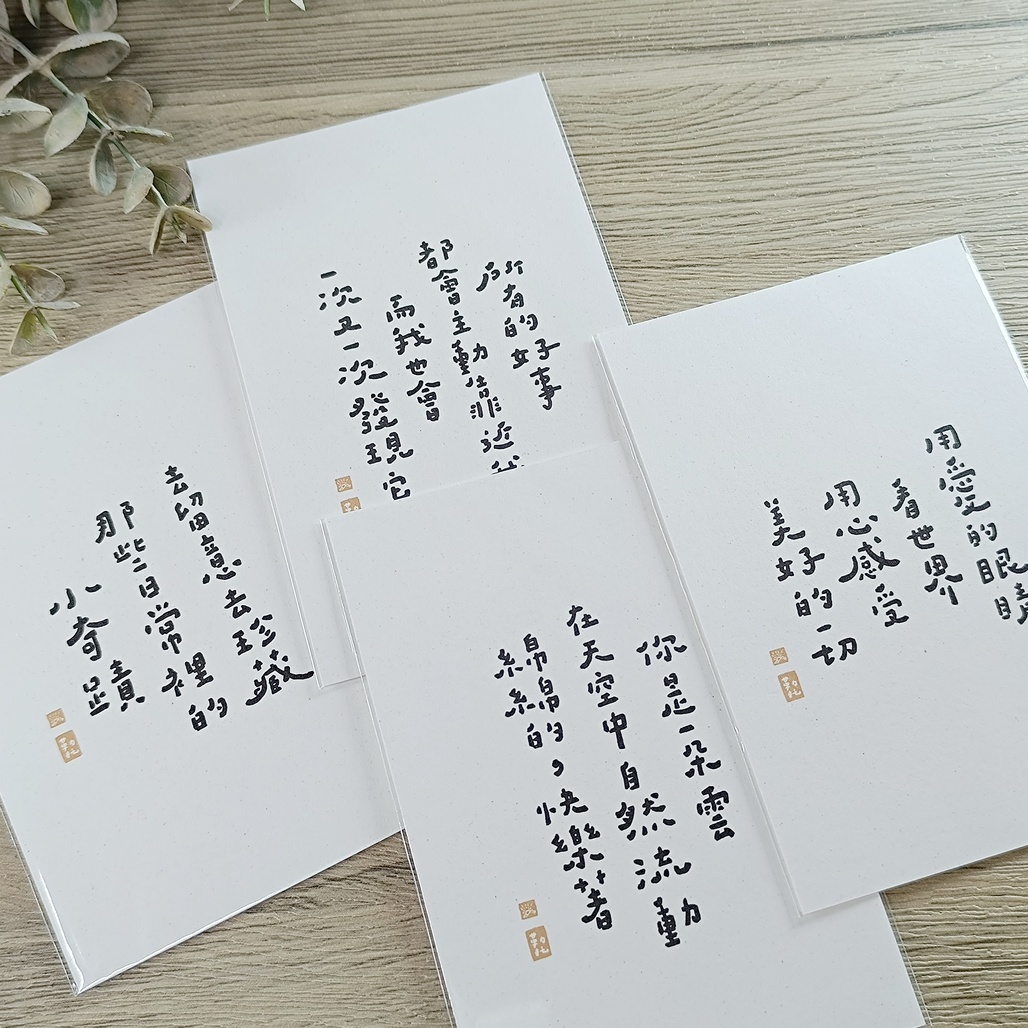 所有的好事
都會主動靠近我
而我也會
一次又一次發現它
用愛的眼睛
看世界
用心感受
美好的一切
去留意去珍藏
那些日常裡的
小奇蹟
你是一朵雲
在天空中自然流動
綿綿的，快樂著